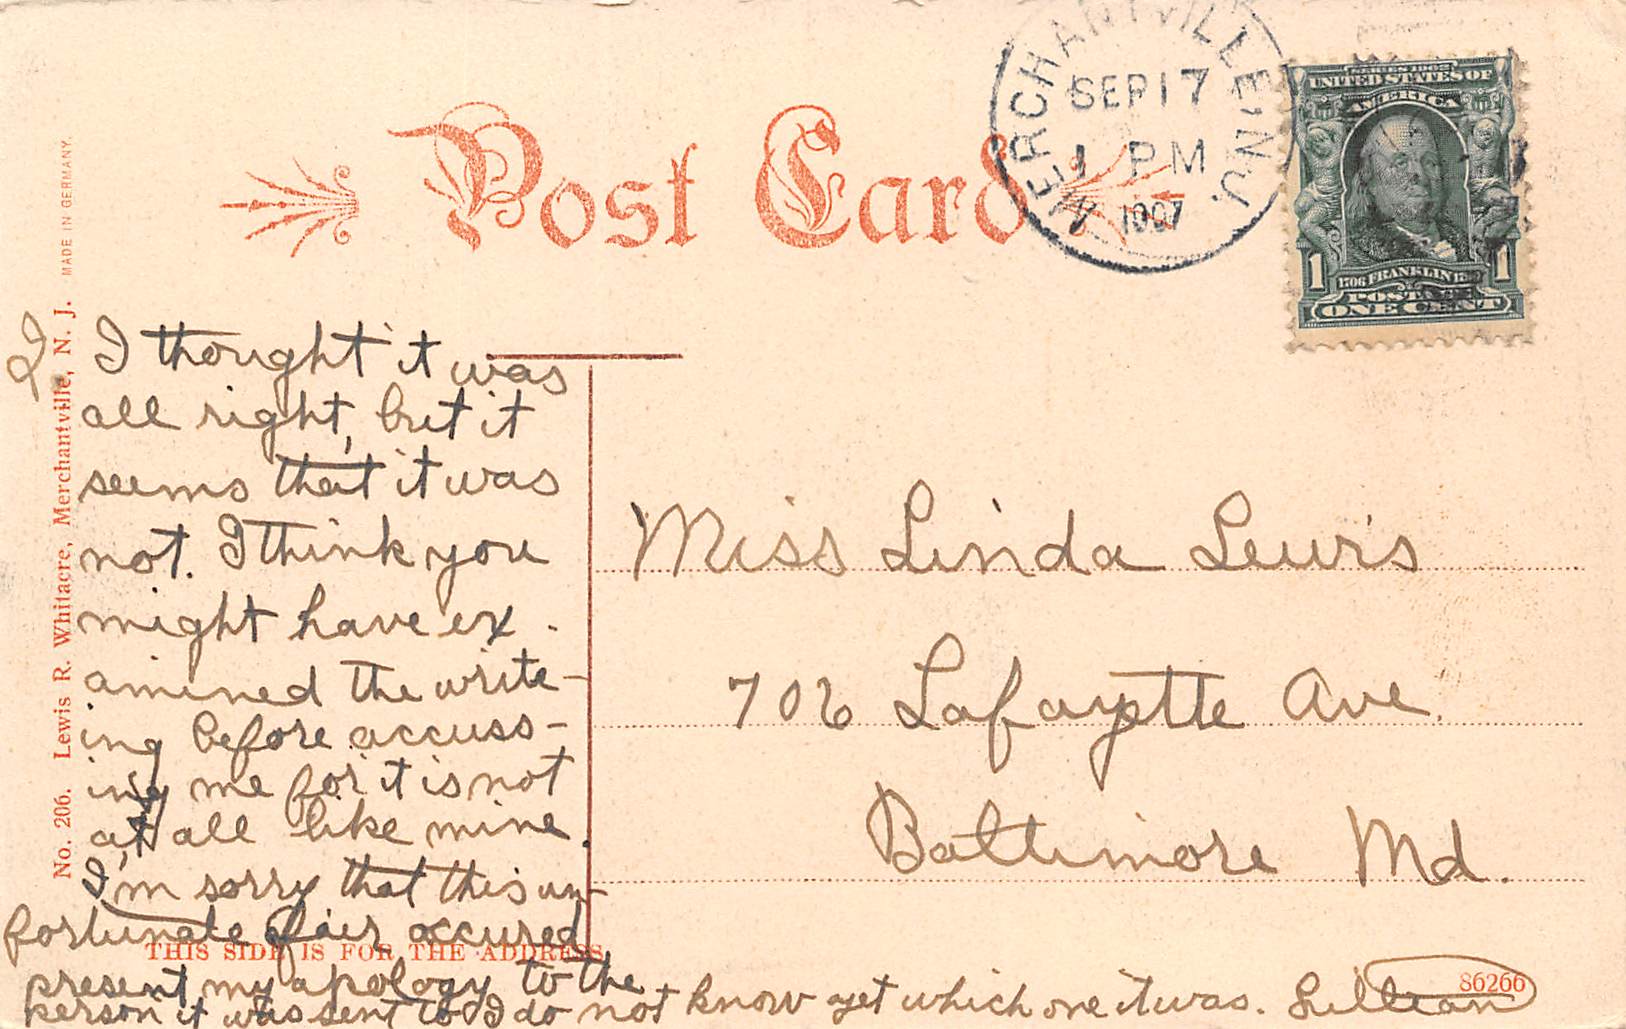 Post Card
MERCHANTVILLE, N.J.
SEP 17
1 PM
1907
SERIES 1902
UNITED STATES OF
AMERICA
1706 FRANKLIN
1 1
POSTAGE
ONE CENT
MADE IN GERMANY.
No. 206. Lewis R. Whitacre, Merchantville, N. J.
2
I thought it was
all right, but it
seems that it was
not. I think you
might have ex-
amined the write-
ing before accuss-
ing me for it is not
at all like mine.
I'm sorry that this un-
fortunate affair occured
present my apology to the
person it was sent to I do not know yet which one it was. Lillian
Miss Linda Lewis
706 Lafayette Ave.
Baltimore Md.
THIS SIDE IS FOR THE ADDRESS
86266